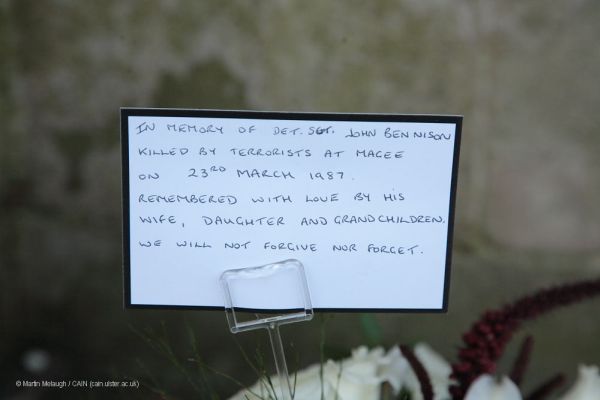 IN MEMORY OF DET. SGT. JOHN BENNISON
KILLED BY TERRORISTS AT MAGEE
ON 23RD MARCH 1987.
REMEMBERED WITH LOVE BY HIS
WIFE, DAUGHTER AND GRANDCHILDREN.
WE WILL NOT FORGIVE NOR FORGET.
© Martin Melaugh / CAIN (cain.ulster.ac.uk)